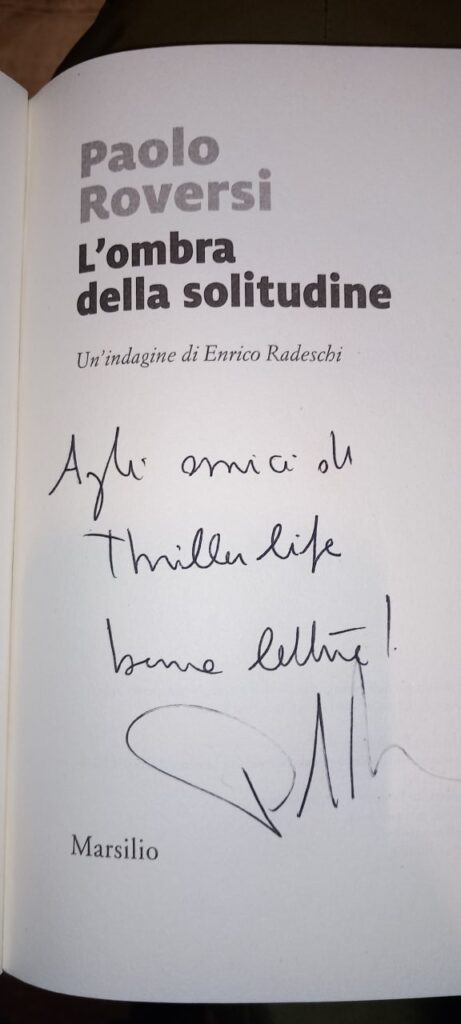 Paolo
Roversi
L'ombra
della solitudine
Un'indagine di Enrico Radeschi
Agli amici di
Thriller life
buona lettura!
Marsilio